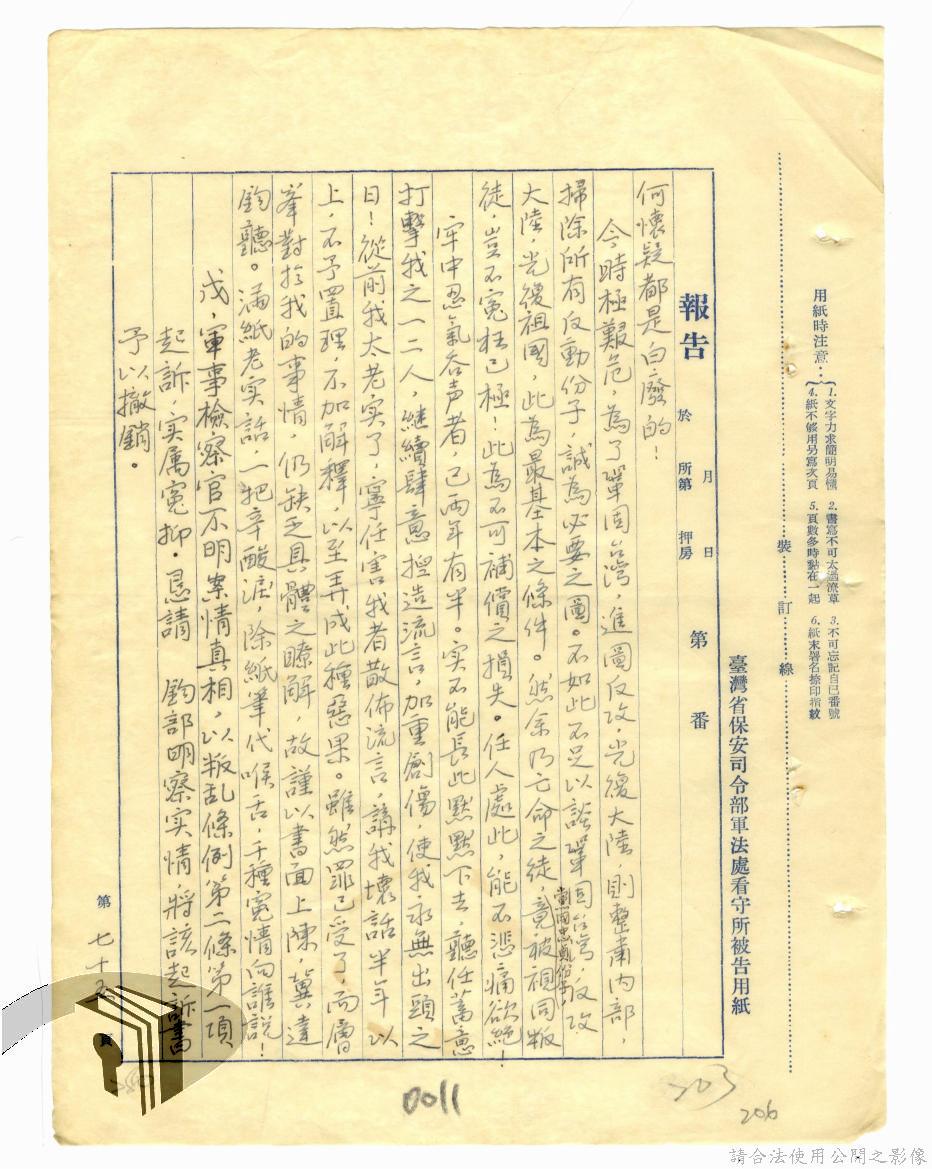 用紙時注意：
1.文字力求簡明易懂　2.書寫不可太過潦草　3.不可忘記自己番號
4.紙不够用另寫次頁　5.頁數多時黏在一起　6.紙末署名捺印指紋
裝訂線
臺灣省保安司令部軍法處看守所被告用紙
報告　於　月　日
所第　押房　第　番
何懷疑都是白廢的！
今時極艱危，為了鞏固台湾，進圖反攻，光復大陸，則整肅内部，
掃除所有反動份子，誠為必要之圖。不如此不足以談鞏固台湾，反攻
大陸，光復祖國，此為最基本之條件。然余乃亡命之徒，黨國忠貞份子，竟被視同叛
徒，豈不冤枉已極！此為不可補償之損失。任人處此，能不悲痛欲絕！
牢中忍氣吞声者，已两年有半。实不能長此默默下去，聽任蓄意
打擊我之一二人，继續肆意捏造流言，加重創傷，使我永無出頭之
日！從前我太老实了，寧任害我者散佈流言，講我壞話半年以
上，不予置理，不加解釋，以至弄成此種惡果。雖然罪已受了，而層
峯對於我的事情，仍缺乏具體之瞭解，故謹以書面上陳，冀達
鈞聽。滿紙老实話，一把辛酸淚，除紙筆代喉舌，千種冤情向誰說！
戊，軍事檢察官不明案情真相，以叛乱條例第二條第一項
起訴，实属冤抑。懇請　鈞部明察实情，將該起訴書
予以撤銷。
第七十五頁
0011
203
206
請合法使用公開之影像